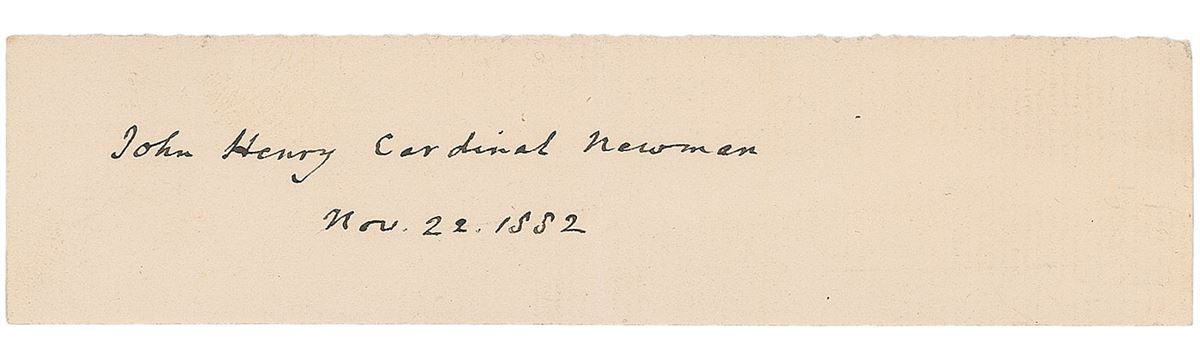 John Henry Cardinal Newman
Nov. 22. 1882